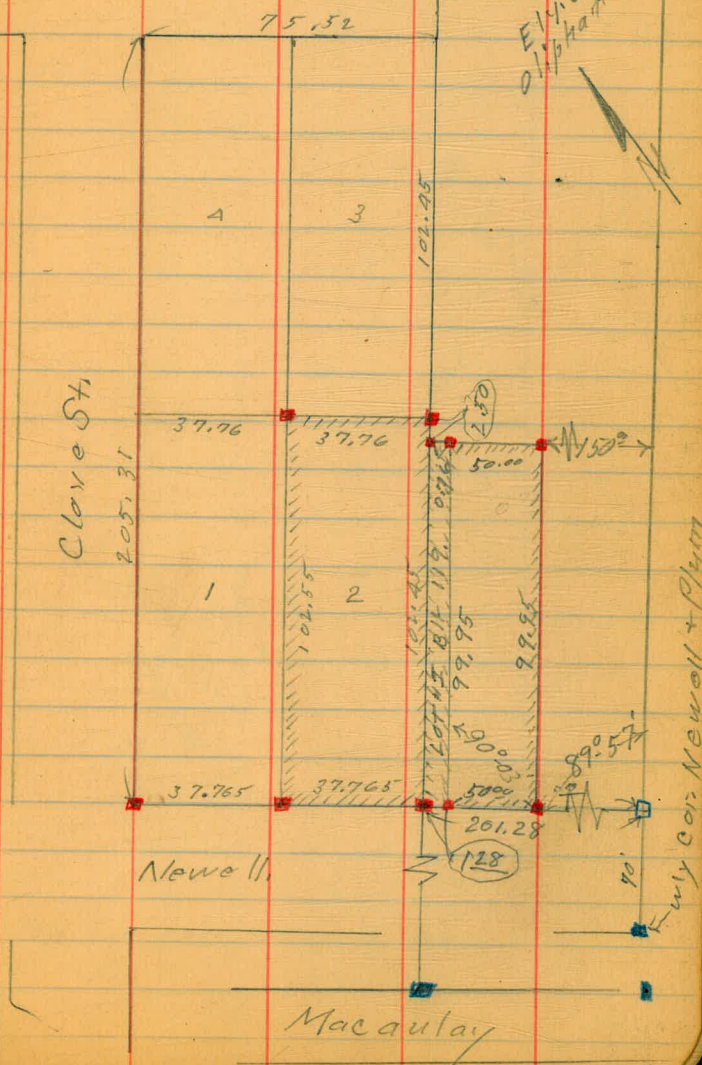 75.52
Oliphant
4
3
102.45
Clove St.
205.31
37.76
37.76
2.50
50.00
150⁰
1
102.55
2
102.45
99.95
99.95
90°03'
89°-57'
37.765
37.765
50⁰⁰
201.28
1.28
Newell
70'
W'ly Cor. Newell + Plum
Macaulay